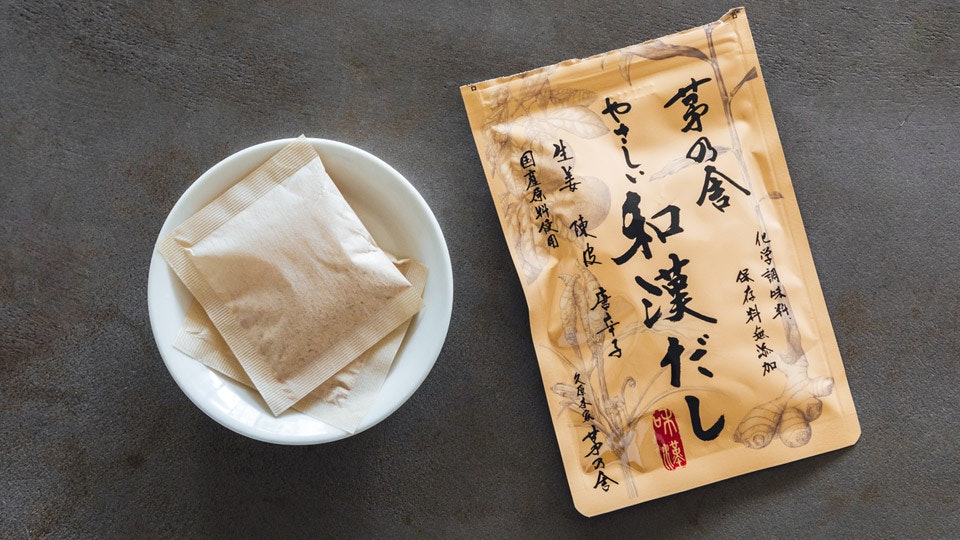 茅乃舎
化学調味料
保存料無添加
やさしい和漢だし
生姜 陳皮 唐辛子
国産原料使用
久原本家 茅乃舎